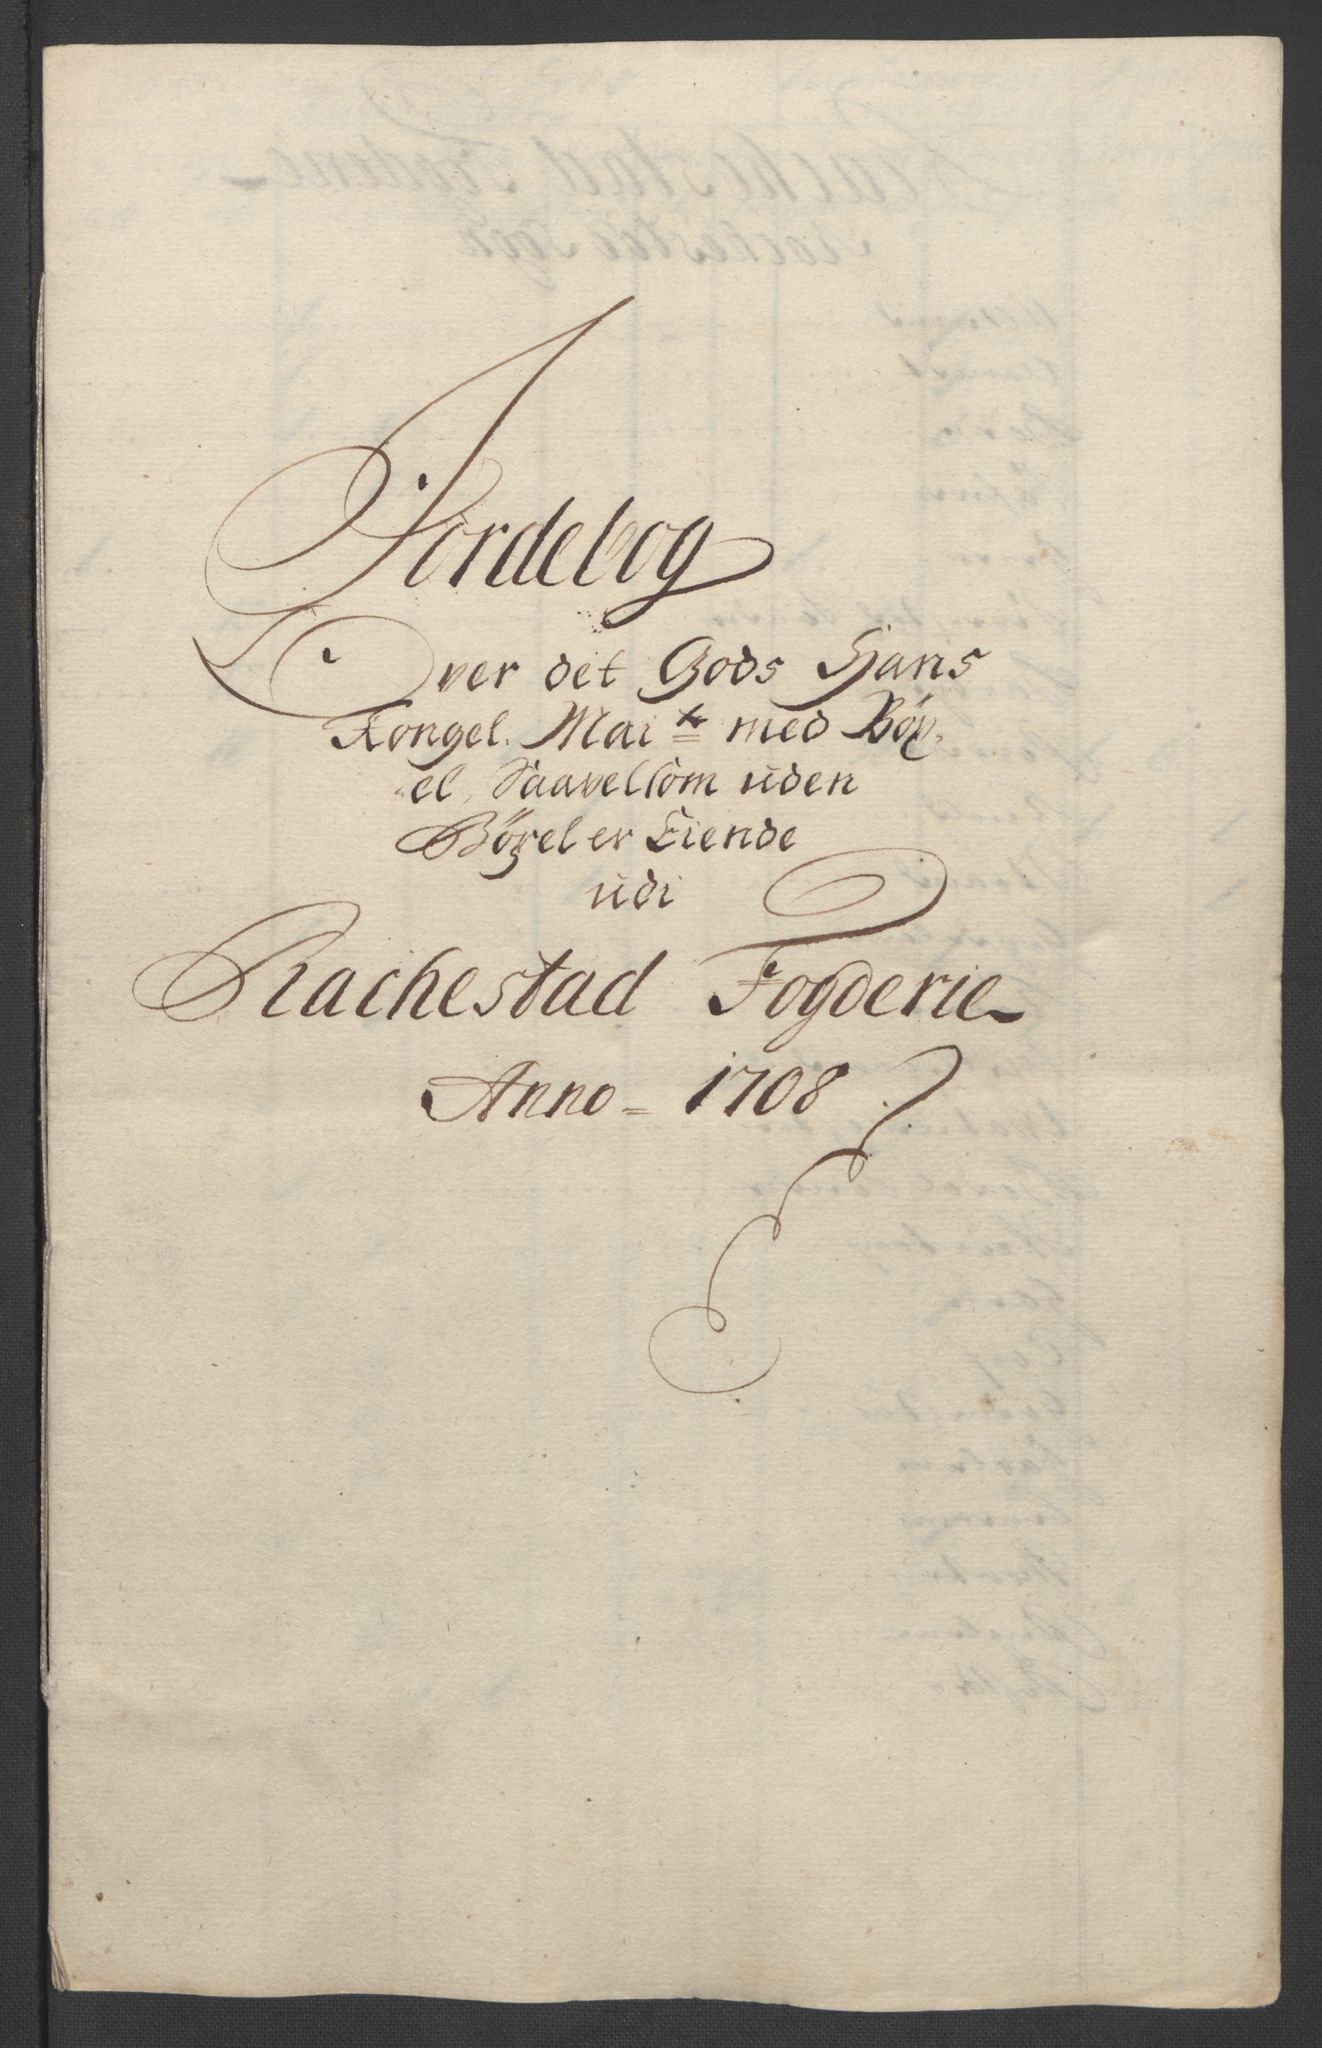 Jordebog
Over det Gods Hans
Kongel. Mai:t med Böx,
el, Saavelsom uden
Böxel er Eiende
udi
Rachestad Fogderie
Anno = 1708